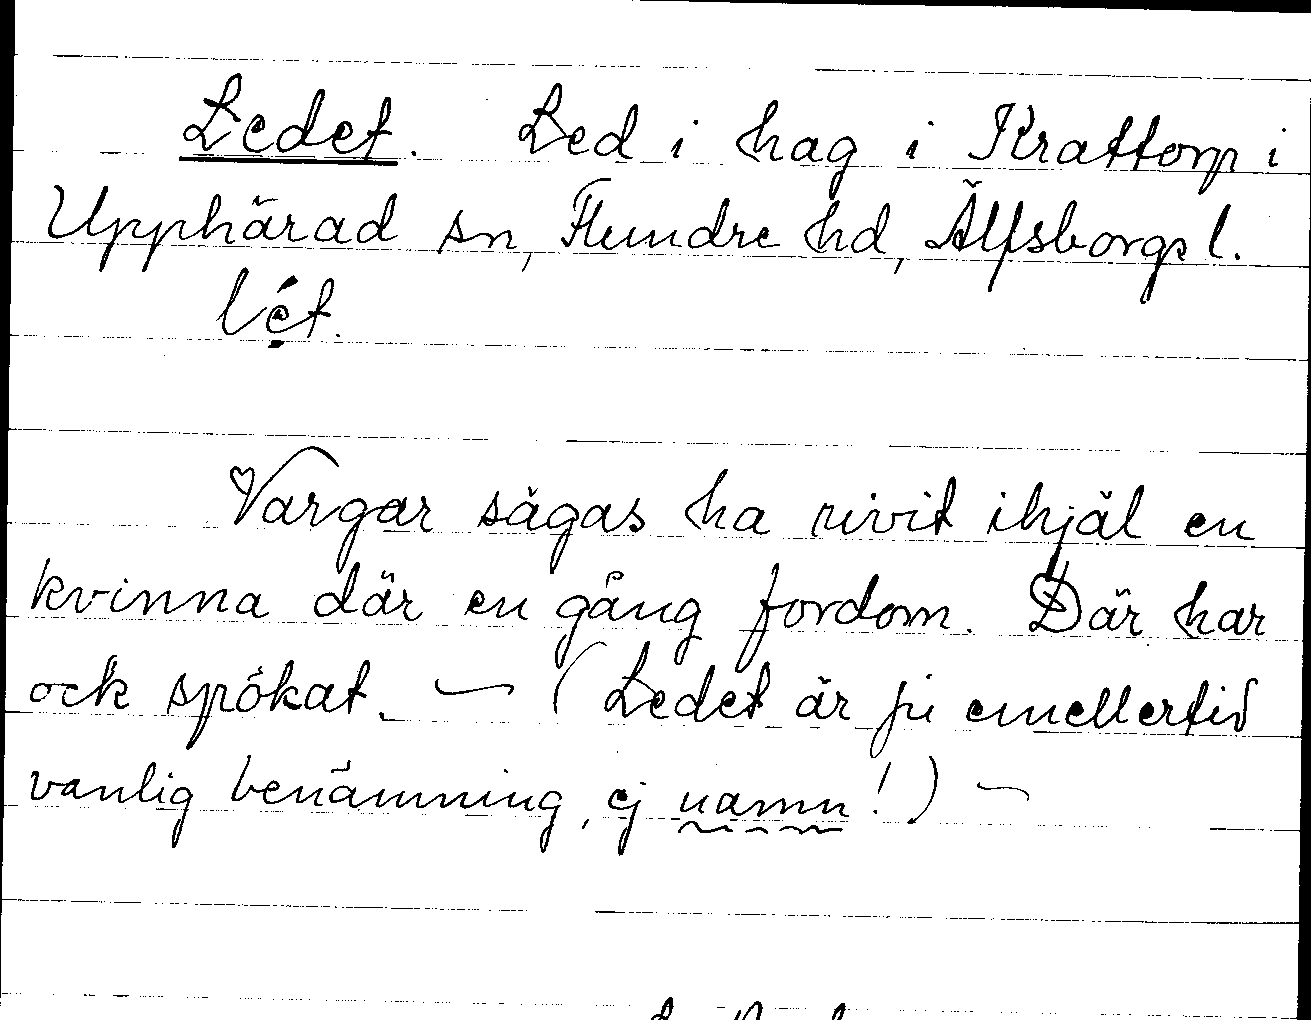 Ledet. Led i hag i Krattorp i
Upphärad sn, Flundre hd, Älfsborgs l.
lẹ́t.
Vargar sägas ha rivit ihjäl en
kvinna där en gång fordom. Där har
ock spökat. — (Ledet är ju emellertid
vanlig benämning, ej namn!) —